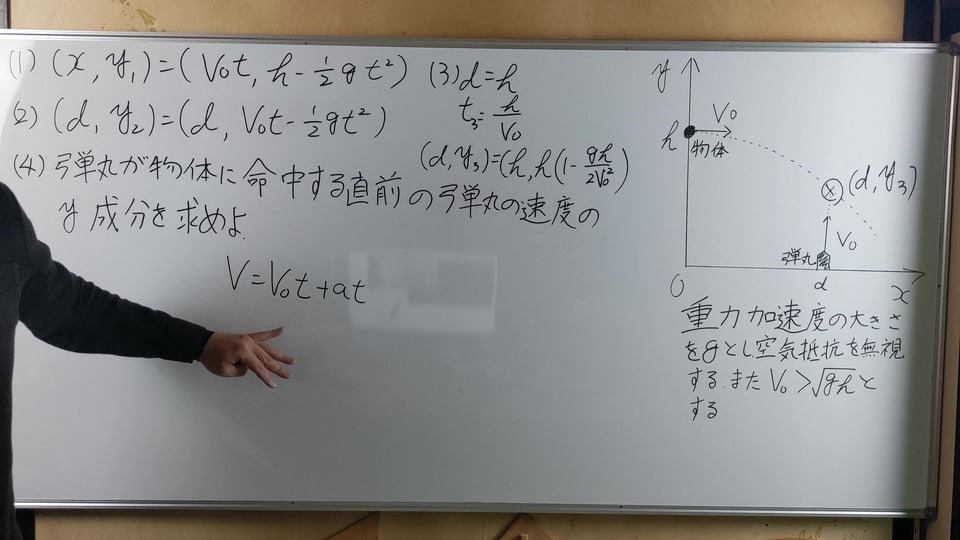 (1) (x, y₁)=(V₀t, h-½gt²)
(2) (d, y₂)=(d, V₀t-½gt²)
(3) d=h
t₃=h/V₀
(d, y₃)=(h, h(1-gh/2V₀²)
(4) 弓単丸が物体に命中する直前の弓単丸の速度の
y 成分を求めよ.
V=V₀t+at
y
V₀
h
物体
(d, y₃)
V₀
弾丸
O
d
x
重力加速度の大きさ
をgとし空気抵抗を無視
する. また V₀>√gh と
する